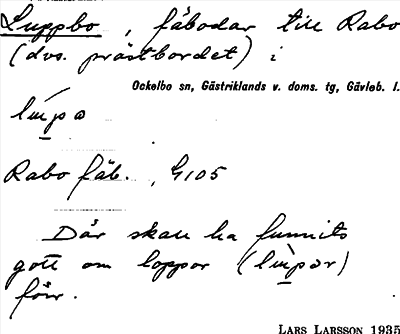 Luppbo, fäbodar till Rabo
(dvs. prästbordet) i
Ockelbo sn, Gästriklands v. doms. tg, Gävleb. l.
Rabo fäb., G105
Där skall ha funnits
gott om loppor
förr.
LARS LARSSON 1935